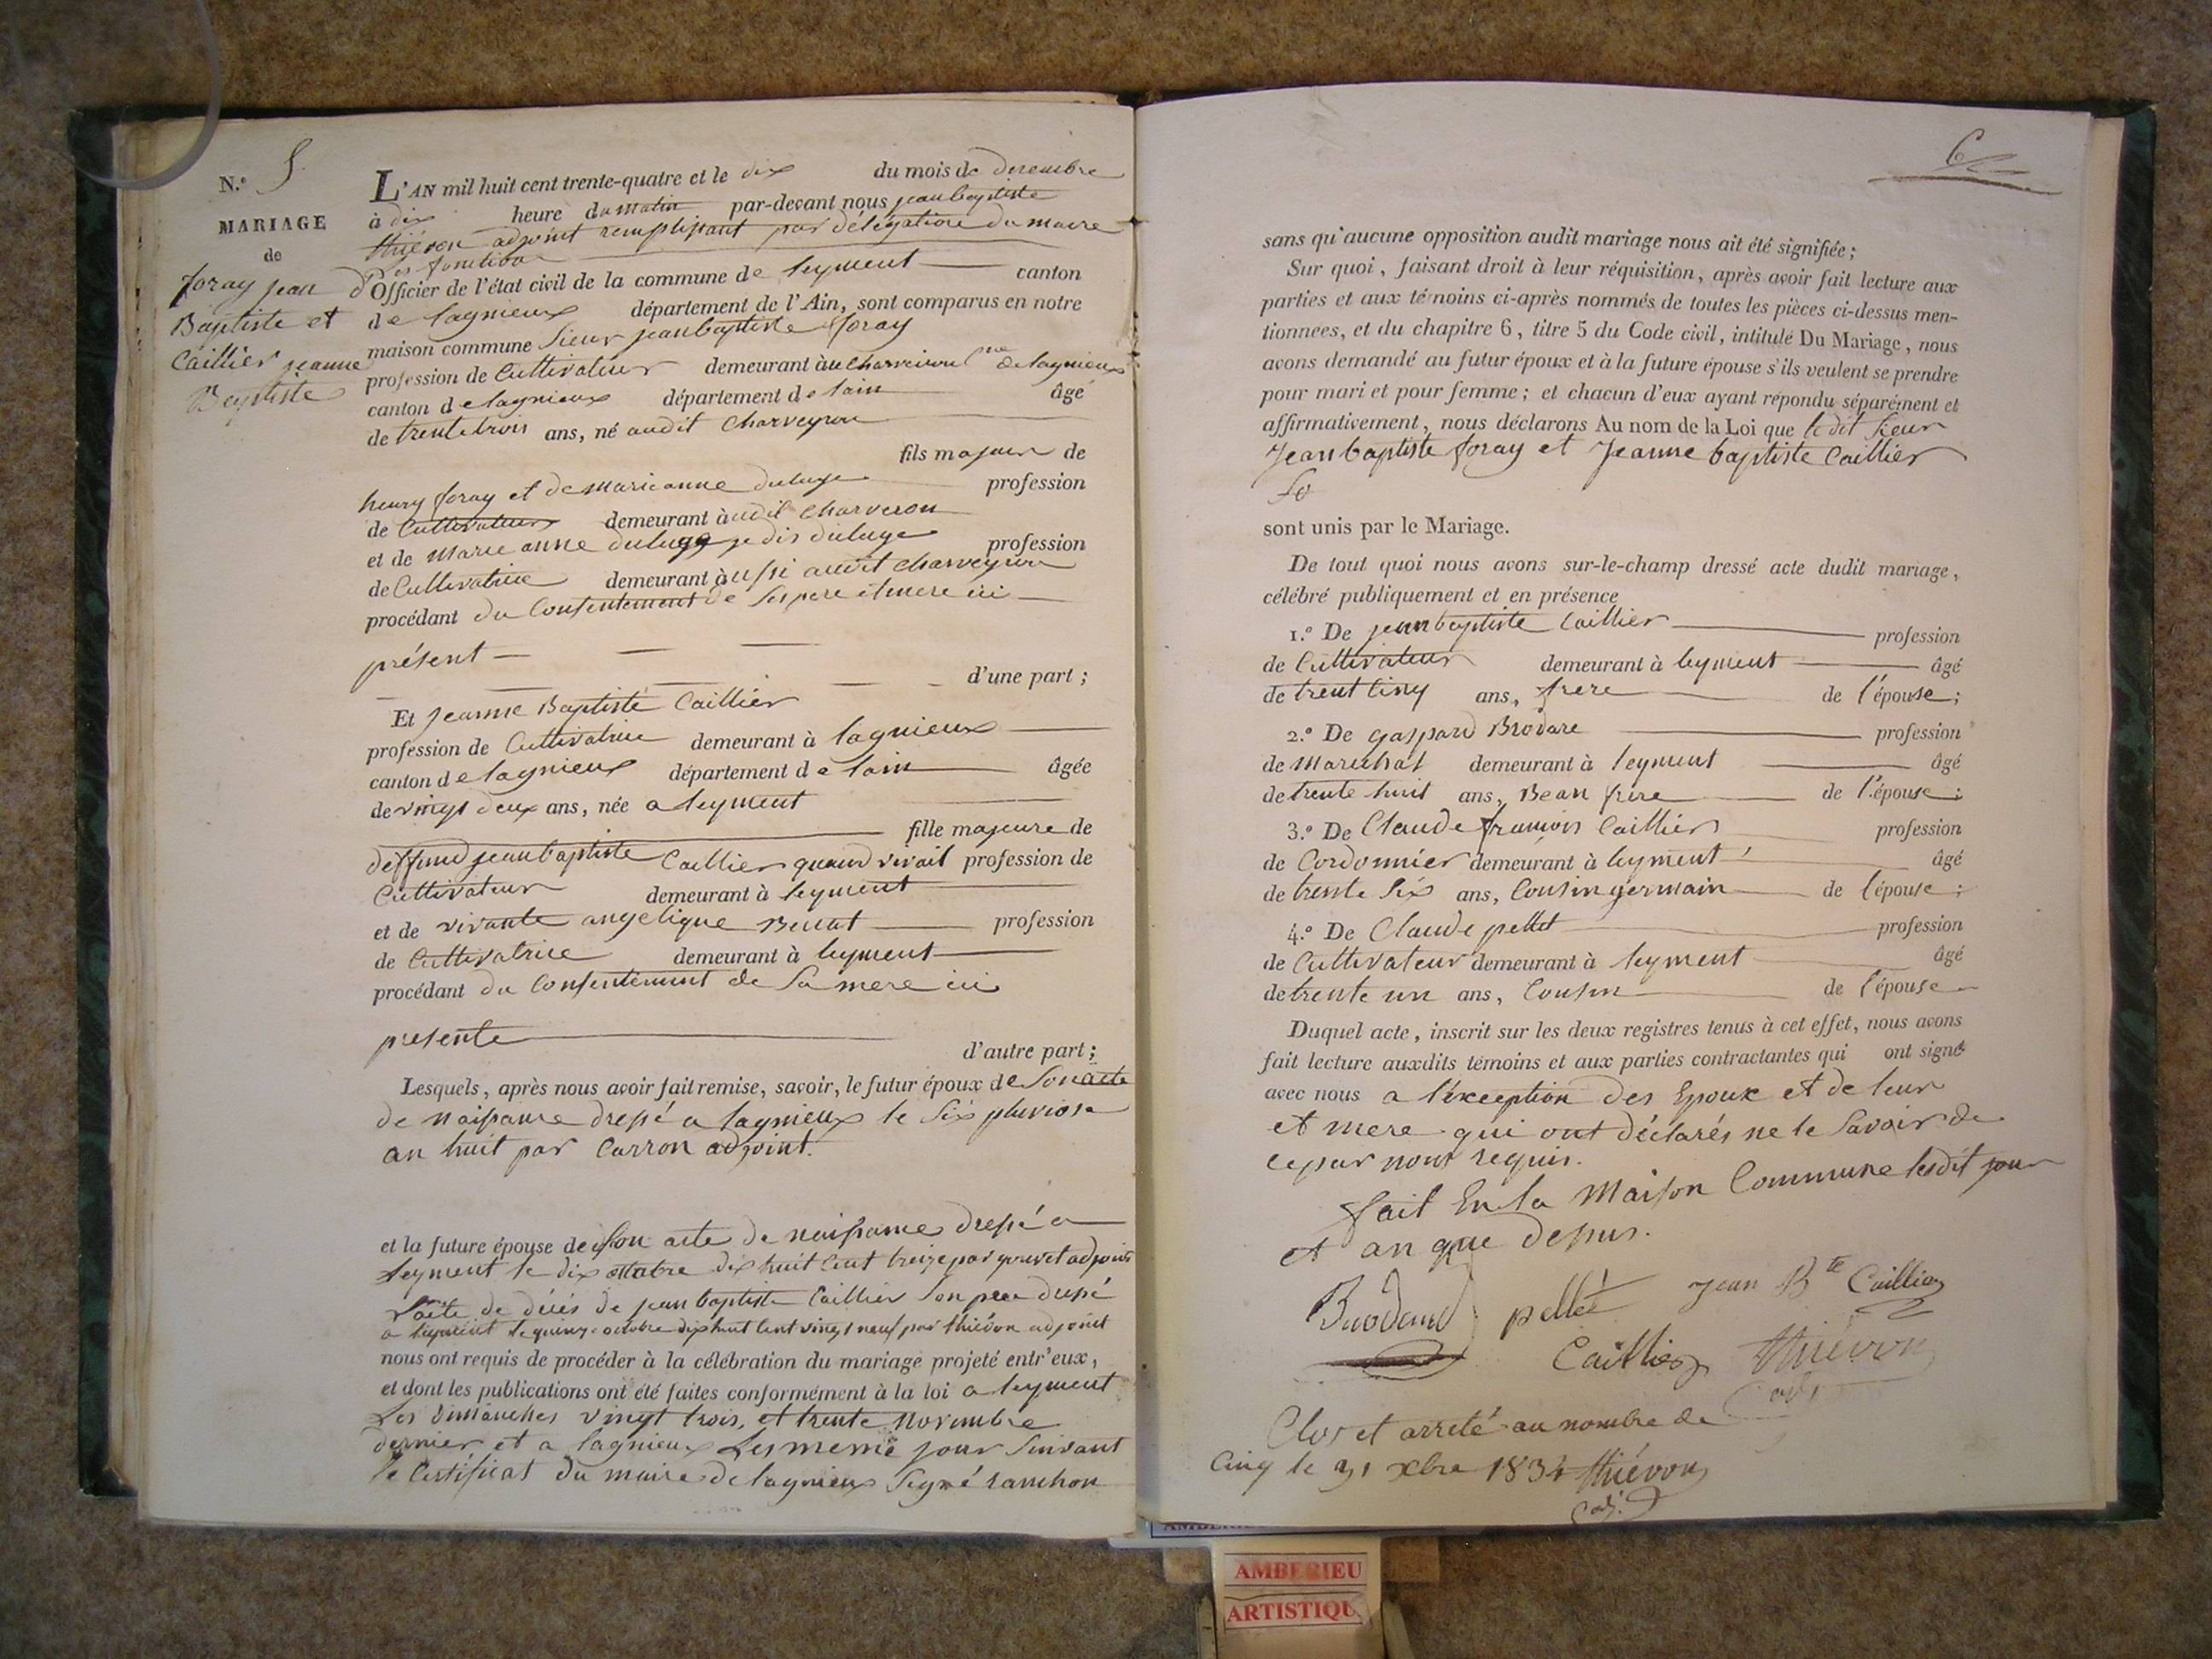 N.° 5
MARIAGE
de
foray jean
Baptiste et
Caillier jeanne
Baptiste
L'AN mil huit cent trente-quatre et le dix du mois de decembre
à dix heure du matin par-devant nous jean baptiste
thiévon adjoint remplissant par délégation du maire
les fonctions
d'Officier de l'état civil de la commune de leyment canton
de lagnieux département de l'Ain, sont comparus en notre
maison commune Sieur jean baptiste foray
profession de Cultivateur demeurant à au charveiron cne de lagnieux
canton de lagnieux département de lain âgé
de trente trois ans, né audit Charveyron
fils majeur de
henry foray et de marieanne duluge profession
de Cultivateur demeurant à udit Charveron
et de marie anne je dis duluge profession
de Cultivatrice demeurant à ussi audit charveyron
procédant du Consentement de Ses pere et mere ici
présent
d'une part ;
Et jeanne Baptiste Caillier
profession de Cultivatrice demeurant à lagnieux
canton de lagnieux département de lain âgée
de vingt deux ans, née a leyment
fille majeure de
deffund jean baptiste Caillier quand vivait profession de
Cultivateur demeurant à leyment
et de vivante angelique profession
de Cultivatrice demeurant à leyment
procédant du Consentement de Sa mere ici
presente
d'autre part ;
Lesquels, après nous avoir fait remise, savoir, le futur époux de Son acte
de naissance dressé a lagnieux le Six pluviose
an huit par Carron adjoint.
et la future épouse de Son acte de naissance dressé a
leyment le dix octobre dix huit Cent treize par adjoint
L'acte de décés de jean baptiste Caillier Son pere dressé
a leyment le quinze octobre dix huit Cent vingt neuf par thiévon adjoint
nous ont requis de procéder à la célébration du mariage projeté entr'eux,
et dont les publications ont été faites conformément à la loi a leyment
Les dimanches vingt trois, et trente novembre
dernier et a lagnieux Les meme jour Suivant
le Certificat du maire de lagnieux Signé ranchon
6
sans qu'aucune opposition audit mariage nous ait été signifiée ;
Sur quoi, faisant droit à leur réquisition, après avoir fait lecture aux
parties et aux témoins ci-après nommés de toutes les pièces ci-dessus men-
tionnees, et du chapitre 6, titre 5 du Code civil, intitulé Du Mariage, nous
avons demandé au futur époux et à la future épouse s'ils veulent se prendre
pour mari et pour femme ; et chacun d'eux ayant répondu séparément et
affirmativement, nous déclarons Au nom de la Loi que le dit Sieur
Jean baptiste foray et Jeanne baptiste Caillier
fo
sont unis par le Mariage.
De tout quoi nous avons sur-le-champ dressé acte dudit mariage,
célébré publiquement et en présence
1.° De jean baptiste Caillier profession
de Cultivateur demeurant à leyment âgé
de trent Cinq ans, frere de l'épouse ;
2.° De gaspard Brodare profession
de marechal demeurant à leyment âgé
de trente huit ans, Beau frere de l'épouse ;
3.° De Claude francois Caillier profession
de Cordonnier demeurant à leyment âgé
de trente Six ans, Cousin germain de l'épouse ;
4.° De Claude pellet profession
de Cultivateur demeurant à leyment âgé
de trente un ans, Cousin de l'épouse
Duquel acte, inscrit sur les deux registres tenus à cet effet, nous avons
fait lecture auxdits témoins et aux parties contractantes qui ont signé
avec nous a l'exception des Epoux et de leur
et mere qui ont déclarés ne le Savoir de
ce par nous requis.
fait En la Maison Commune lesdit jour
et an que dessus.
pellet Jean Bte Caillier
Caillier thiévon
adj.
Clos et arreté au nombre de
Cinq le 31 xbre 1834 thiévon
adj.
AMBERIEU
ARTISTIQU